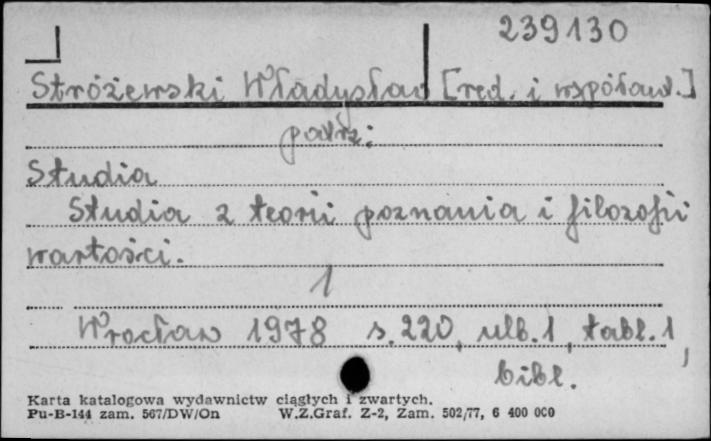 239130
Stróżewski Władysław [red. i współaut.]
patrz:
Studia
Studia z teorii poznania i filozofii
wartości.
1
Wrocław 1978 s. 220, nlb. 1, tabl. 1,
bibl.
Karta katalogowa wydawnictw ciągłych i zwartych.
Pu-B-144 zam. 567/DW/On W.Z.Graf. Z-2, Zam. 502/77, 6 400 000